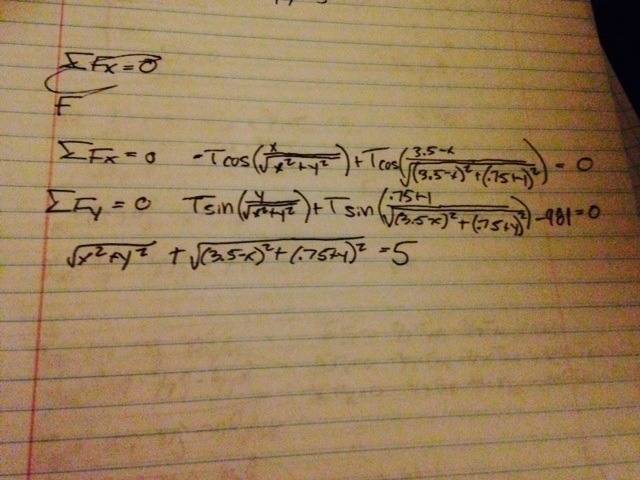 ΣFx=0
F
ΣFx=0 -Tcos(x/√(x²+y²))+Tcos((3.5-x)/√((3.5-x)²+(.75+y)²))=0
ΣFy=0 Tsin(y/√(x²+y²))+Tsin((.75+y)/√((3.5x)²+(.75+y)²))-981=0
√(x²+y²) +√((3.5-x)²+(.75+y)²)=5